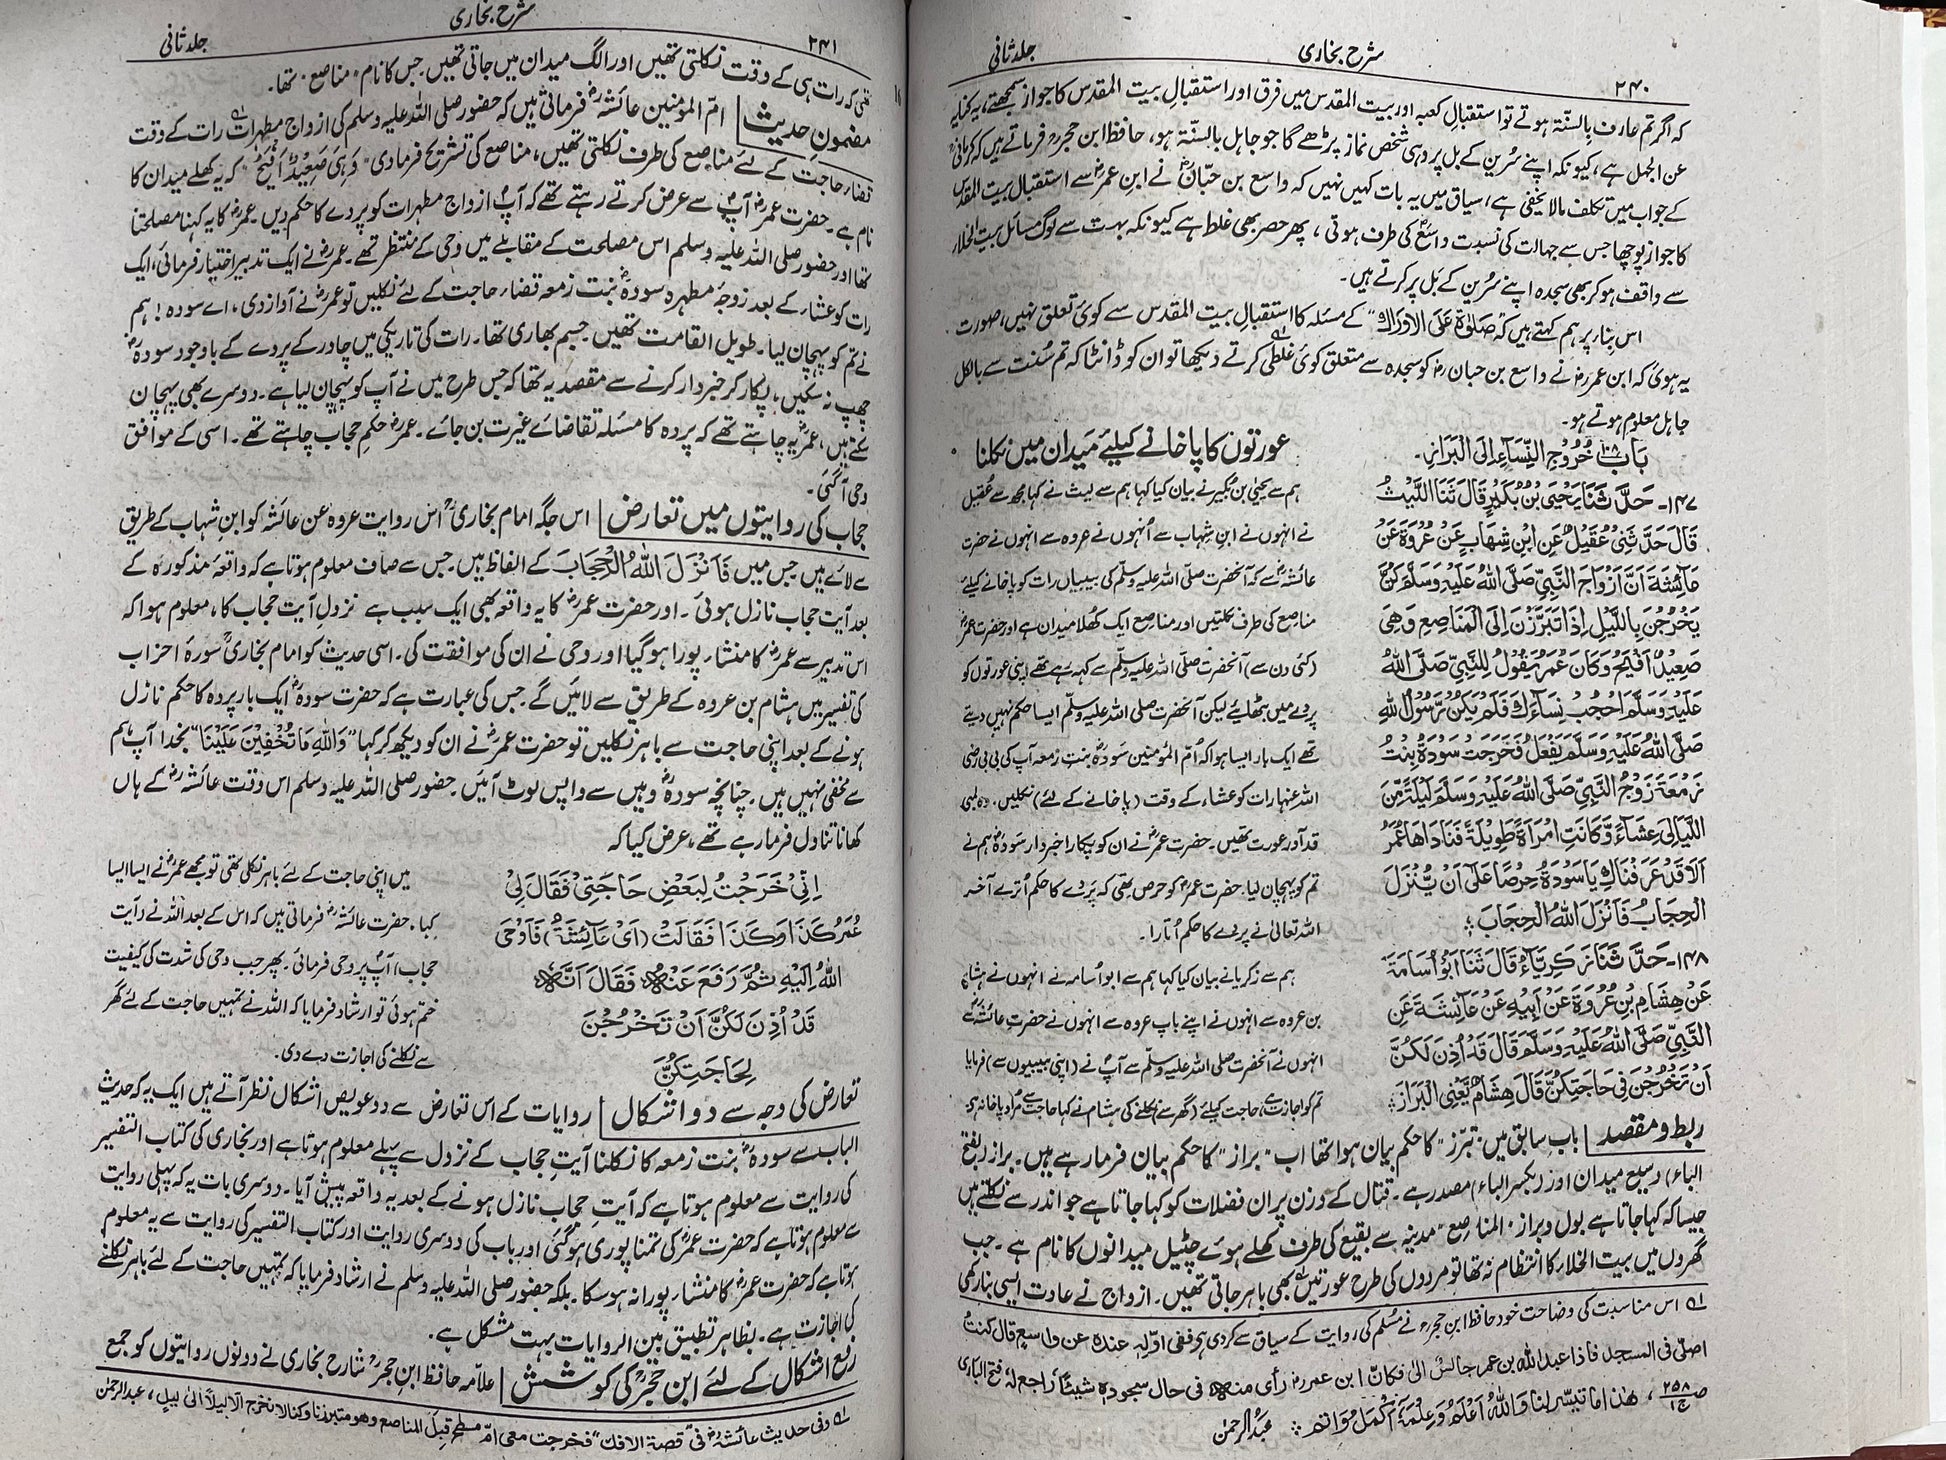 ۲۴۰
شرح بخاری
جلد ثانی
کہ اگر تم عارف بالسنّۃ ہوتے تو استقبالِ کعبہ اور بیت المقدس میں فرق اور استقبالِ بیت المقدس کا جواز سمجھتے، یہ کنایہ
عن الجہل ہے، کیونکہ اپنے سُرین کے بل پر وہی شخص نماز پڑھے گا جو جاہل بالسنّۃ ہو، حافظ ابن حجرؒ فرماتے ہیں کہ کرمانیؒ
کے جواب میں تکلف مالا یخفیٰ ہے، سیاق میں یہ بات کہیں نہیں کہ واسع بن حبّانؒ نے ابن عمرؓ سے استقبال بیت المقدس
کا جواز پوچھا جس سے جہالت کی نسبت واسعؒ کی طرف ہوتی، پھر حصر بھی غلط ہے کیونکہ بہت سے لوگ مسائل بیت الخلاء
سے واقف ہو کر بھی سجدہ اپنے سُرین کے بَل پر کرتے ہیں۔
اس بناء پر ہم کہتے ہیں کہ "صَلوٰۃ عَلَی الاَورَاکِ" کے مسئلہ کا استقبالِ بیت المقدس سے کوئی تعلق نہیں، صورت
یہ ہوئی کہ ابن عمرؓ نے واسع بن حبانؒ کو سجدہ سے متعلق کوئی غلطی کرتے دیکھا تو ان کو ڈانٹا کہ تم سُنت سے بالکل
جاہل معلوم ہوتے ہو۔
بَابُ خُرُوجِ النِّسَآءِ اِلَی الْبَرَازِ۔
۱۴۷۔ حَدَّثَنَا یَحْیَی بْنُ بُکَیْرٍ قَالَ ثَنَا اللَّیْثُ
قَالَ حَدَّثَنِیْ عُقَیْلٌ عَنِ ابْنِ شِهَابٍ عَنْ عُرْوَةَ عَنْ
عَآئِشَةَ اَنَّ اَزْوَاجَ النَّبِیِّ صَلَّی اللّٰهُ عَلَیْهِ وَسَلَّمَ کُنَّ
یَخْرُجْنَ بِاللَّیْلِ اِذَا تَبَرَّزْنَ اِلَی الْمَنَاصِعِ وَهِیَ
صَعِیْدٌ اَفْیَحُ وَکَانَ عُمَرُ یَقُوْلُ لِلنَّبِیِّ صَلَّی اللّٰهُ
عَلَیْهِ وَسَلَّمَ اُحْجُبْ نِسَآءَكَ فَلَمْ یَکُنْ رَّسُوْلُ اللّٰهِ
صَلَّی اللّٰهُ عَلَیْهِ وَسَلَّمَ یَفْعَلُ فَخَرَجَتْ سَوْدَةُ بِنْتُ
زَمْعَةَ زَوْجُ النَّبِیِّ صَلَّی اللّٰهُ عَلَیْهِ وَسَلَّمَ لَیْلَةً مِّنَ
اللَّیَالِیْ عِشَآءً وَّکَانَتِ امْرَاَةً طَوِیْلَةً فَنَادَاهَا عُمَرُ
اَلَا قَدْ عَرَفْنَاكِ یَا سَوْدَةُ حِرْصًا عَلٰی اَنْ یُّنْزَلَ
الْحِجَابُ فَاَنْزَلَ اللّٰهُ الْحِجَابَ ؞
۱۴۸۔ حَدَّثَنَا زَکَرِیَّآءُ قَالَ ثَنَا اَبُوْ اُسَامَةَ
عَنْ هِشَامِ بْنِ عُرْوَةَ عَنْ اَبِیْهِ عَنْ عَآئِشَةَ عَنِ
النَّبِیِّ صَلَّی اللّٰهُ عَلَیْهِ وَسَلَّمَ قَالَ قَدْ اُذِنَ لَکُنَّ
اَنْ تَخْرُجْنَ فِیْ حَاجَتِکُنَّ قَالَ هِشَامٌ یَّعْنِی الْبَرَازَ ؞
عورتوں کا پاخانے کیلئے میدان میں نکلنا
ہم سے یحییٰ بن بُکیر نے بیان کیا کہا ہم سے لیث نے کہا مجھ سے عُقیل
نے انہوں نے ابنِ شہاب سے اُنہوں نے عروہ سے انہوں نے حضرت
عائشہؓ سے کہ آنحضرت صلی اللہ علیہ وسلم کی بیبیاں رات کو پاخانے کیلئے
مناصع کی طرف نکلتیں اور مناصع ایک کُھلا میدان ہے اور حضرت عمرؓ
(کئی دن سے) آنحضرت صلی اللہ علیہ وسلّم سے کہہ رہے تھے اپنی عورتوں کو
پردے میں بٹھائیے لیکن آنحضرت صلی اللہ علیہ وسلّم ایسا حکم نہیں دیتے
تھے ایک بار ایسا ہوا کہ اُمّ المؤمنین سَودہؓ بنتِ زمعہ آپ کی بی بی رضی
اللہ عنہا رات کو عشاء کے وقت (پاخانے کے لئے) نکلیں۔ وہ لمبی
قد آور عورت تھیں۔ حضرت عمرؓ نے ان کو پکارا خبردار سَودہؓ ہم نے
تم کو پہچان لیا۔ حضرت عمرؓ کو حرص تھی کہ پردے کا حکم اُترے آخر
اللہ تعالیٰ نے پردے کا حکم اُتارا۔
ہم سے زکریا نے بیان کیا کہا ہم سے ابو اُسامہ نے انہوں نے ہشام
بن عروہ سے انہوں نے اپنے باپ عروہ سے انہوں نے حضرت عائشہؓ سے
انہوں نے آنحضرت صلی اللہ علیہ وسلّم سے آپؐ نے (اپنی بیبیوں سے) فرمایا
تم کو اجازت ہے حاجت کیلئے (گھر سے) نکلنے کی ہشام نے کہا حاجت سے مُراد پاخانہ ہے
ربط و مقصد | بابِ سابق میں "تبرّز" کا حکم بیان ہوا تھا اب "براز" کا حکم بیان فرما رہے ہیں۔ براز (بفتح
الباء) وسیع میدان اور (بکسر الباء) مصدر ہے۔ قتال کے وزن پر ان فضلات کو کہا جاتا ہے جو اندر سے نکلتے ہیں
جیسا کہ کہا جاتا ہے بول و براز "المناصع" مدینہ سے بقیع کی طرف کھلے ہوئے چٹیل میدانوں کا نام ہے۔ جب
گھروں میں بیت الخلاء کا انتظام نہ تھا تو مردوں کی طرح عورتیں بھی باہر جاتی تھیں۔ ازواج نے عادت ایسی بنا رکھی
لے اس مناسبت کی وضاحت خود حافظ ابنِ حجرؒ نے مُسلم کی روایت کے سیاق سے کر دی ہے ففی اوّلہٖ عندہ عن واسع قال کنت
اصلّی فی المسجد فاذا عبد اللہ بن عمر جالس الیٰ فکانّ ابن عمر رأی منہ فی حال سجودہ شیئًا، راجع لہٗ فتح الباری
ص ۲۵۸ ج۱، ھٰذا ما تیسّر لنا وَاللہُ اَعْلَمُ وَعِلْمُہٗ اَکْمَلُ وَاَتَم ؞ عبدُ الرحمٰن
۲۴۱
شرح بخاری
جلد ثانی
تھی کہ رات ہی کے وقت نکلتی تھیں اور الگ میدان میں جاتی تھیں۔ جس کا نام "مناصع" تھا۔
مضمونِ حدیث | امّ المؤمنین عائشہؓ فرماتی ہیں کہ حضور صلی اللہ علیہ وسلم کی ازواجِ مطہرات رات کے وقت
قضاء حاجت کے لئے مناصع کی طرف نکلتی تھیں، مناصع کی تشریح فرما دی "وَهِیَ صَعِیْدٌ اَفْیَحُ" کہ یہ کھلے میدان کا
نام ہے۔ حضرت عمرؓ آپؐ سے عرض کرتے رہتے تھے کہ آپؐ ازواجِ مطہرات کو پردے کا حکم دیں۔ عمرؓ کا یہ کہنا مصلحتًا
تھا اور حضور صلی اللہ علیہ وسلم اس مصلحت کے مقابلے میں وحی کے منتظر تھے۔ عمرؓ نے ایک تدبیر اختیار فرمائی، ایک
رات کو عشاء کے بعد زوجۂ مطہرہ سودہؓ بنت زمعہ قضاء حاجت کے لئے نکلیں تو عمرؓ نے آواز دی، اے سودہ! ہم
نے تم کو پہچان لیا۔ طویل القامت تھیں۔ جسم بھاری تھا۔ رات کی تاریکی میں چادر کے پردے کے باوجود سودہؓ
چھپ نہ سکیں، پکار کر خبردار کرنے سے مقصد یہ تھا کہ جس طرح میں نے آپ کو پہچان لیا ہے۔ دوسرے بھی پہچان
سکتے ہیں، عمرؓ یہ چاہتے تھے کہ پردہ کا مسئلہ تقاضائے غیرت بن جائے۔ عمرؓ حکمِ حجاب چاہتے تھے۔ اسی کے موافق
وحی آ گئی۔
حجاب کی روایتوں میں تعارض | اس جگہ امام بخاریؒ اس روایت عروہ عن عائشہ کو ابنِ شہاب کے طریق
سے لائے ہیں جس میں فَاَنْزَلَ اللّٰهُ الْحِجَابَ کے الفاظ ہیں۔ جس سے صاف معلوم ہوتا ہے کہ واقعۂ مذکورہ کے
بعد آیت حجاب نازل ہوئی۔ اور حضرت عمرؓ کا یہ واقعہ بھی ایک سبب ہے نزولِ آیت حجاب کا، معلوم ہوا کہ
اس تدبیر سے عمرؓ کا منشاء پورا ہو گیا اور وحی نے ان کی موافقت کی۔ اسی حدیث کو امام بخاریؒ سُورۂ احزاب
کی تفسیر میں ہشام بن عروہ کے طریق سے لائیں گے۔ جس کی عبارت ہے کہ حضرت سودہؓ ایک بار پردہ کا حکم نازل
ہونے کے بعد اپنی حاجت سے باہر نکلیں تو حضرت عمرؓ نے ان کو دیکھ کر کہا "وَاللّٰهِ مَا تَخْفَیْنَ عَلَیْنَا" بخدا آپ ہم
سے مخفی نہیں ہیں۔ چنانچہ سودہؓ وہیں سے واپس لوٹ آئیں۔ حضور صلی اللہ علیہ وسلم اس وقت عائشہؓ کے ہاں
کھانا تناول فرما رہے تھے، عرض کیا کہ
اِنِّیْ خَرَجْتُ لِبَعْضِ حَاجَتِیْ فَقَالَ لِیْ
عُمَرُ کَذَا وَکَذَا فَقَالَتْ (اَیْ عَآئِشَةُ) فَاَوْحَی
اللّٰهُ اِلَیْهِ ثُمَّ رَفَعَ عَنْهُ فَقَالَ اِنَّهٗ
قَدْ اُذِنَ لَکُنَّ اَنْ تَخْرُجْنَ
لِحَاجَتِکُنَّ
میں اپنی حاجت کے لئے باہر نکلی تھی تو مجھے عمرؓ نے ایسا ایسا
کہا۔ حضرت عائشہؓ فرماتی ہیں کہ اس کے بعد اللہ نے (آیت
حجاب) آپؐ پر وحی فرمائی۔ پھر جب وحی کی شدت کی کیفیت
ختم ہوئی تو ارشاد فرمایا کہ اللہ نے تمہیں حاجت کے لئے گھر
سے نکلنے کی اجازت دے دی۔
تعارض کی وجہ سے دو اشکال | روایات کے اس تعارض سے دو عویص اشکال نظر آتے ہیں ایک یہ کہ حدیث
الباب سے سودہؓ بنت زمعہ کا نکلنا آیتِ حجاب کے نزول سے پہلے معلوم ہوتا ہے اور بخاری کی کتاب التفسیر
کی روایت سے معلوم ہوتا ہے کہ آیتِ حجاب نازل ہونے کے بعد یہ واقعہ پیش آیا۔ دوسری بات یہ کہ پہلی روایت
سے معلوم ہوتا ہے کہ حضرت عمرؓ کی تمنا پوری ہو گئی اور باب کی دوسری روایت اور کتاب التفسیر کی روایت سے یہ معلوم
ہوتا ہے کہ حضرت عمرؓ کا منشاء پورا نہ ہو سکا۔ بلکہ حضور صلی اللہ علیہ وسلم نے ارشاد فرمایا کہ تمہیں حاجت کے لئے باہر نکلنے
کی اجازت ہے۔ بظاہر تطبیق بین الروایات بہت مشکل ہے۔
رفع اشکال کے لئے ابن حجرؒ کی کوشش | علّامہ حافظ ابنِ حجرؒ شارح بخاری نے دونوں روایتوں کو جمع
لے وفی حدیث عائشۃؓ فی "قصۃ الافک" فخرجت معی امّ مسطح قِبلَ المناصع وھو متبرزنا وکنا لا نخرج الّا لیلًا الیٰ لیلٍ، عبد الرحمٰن